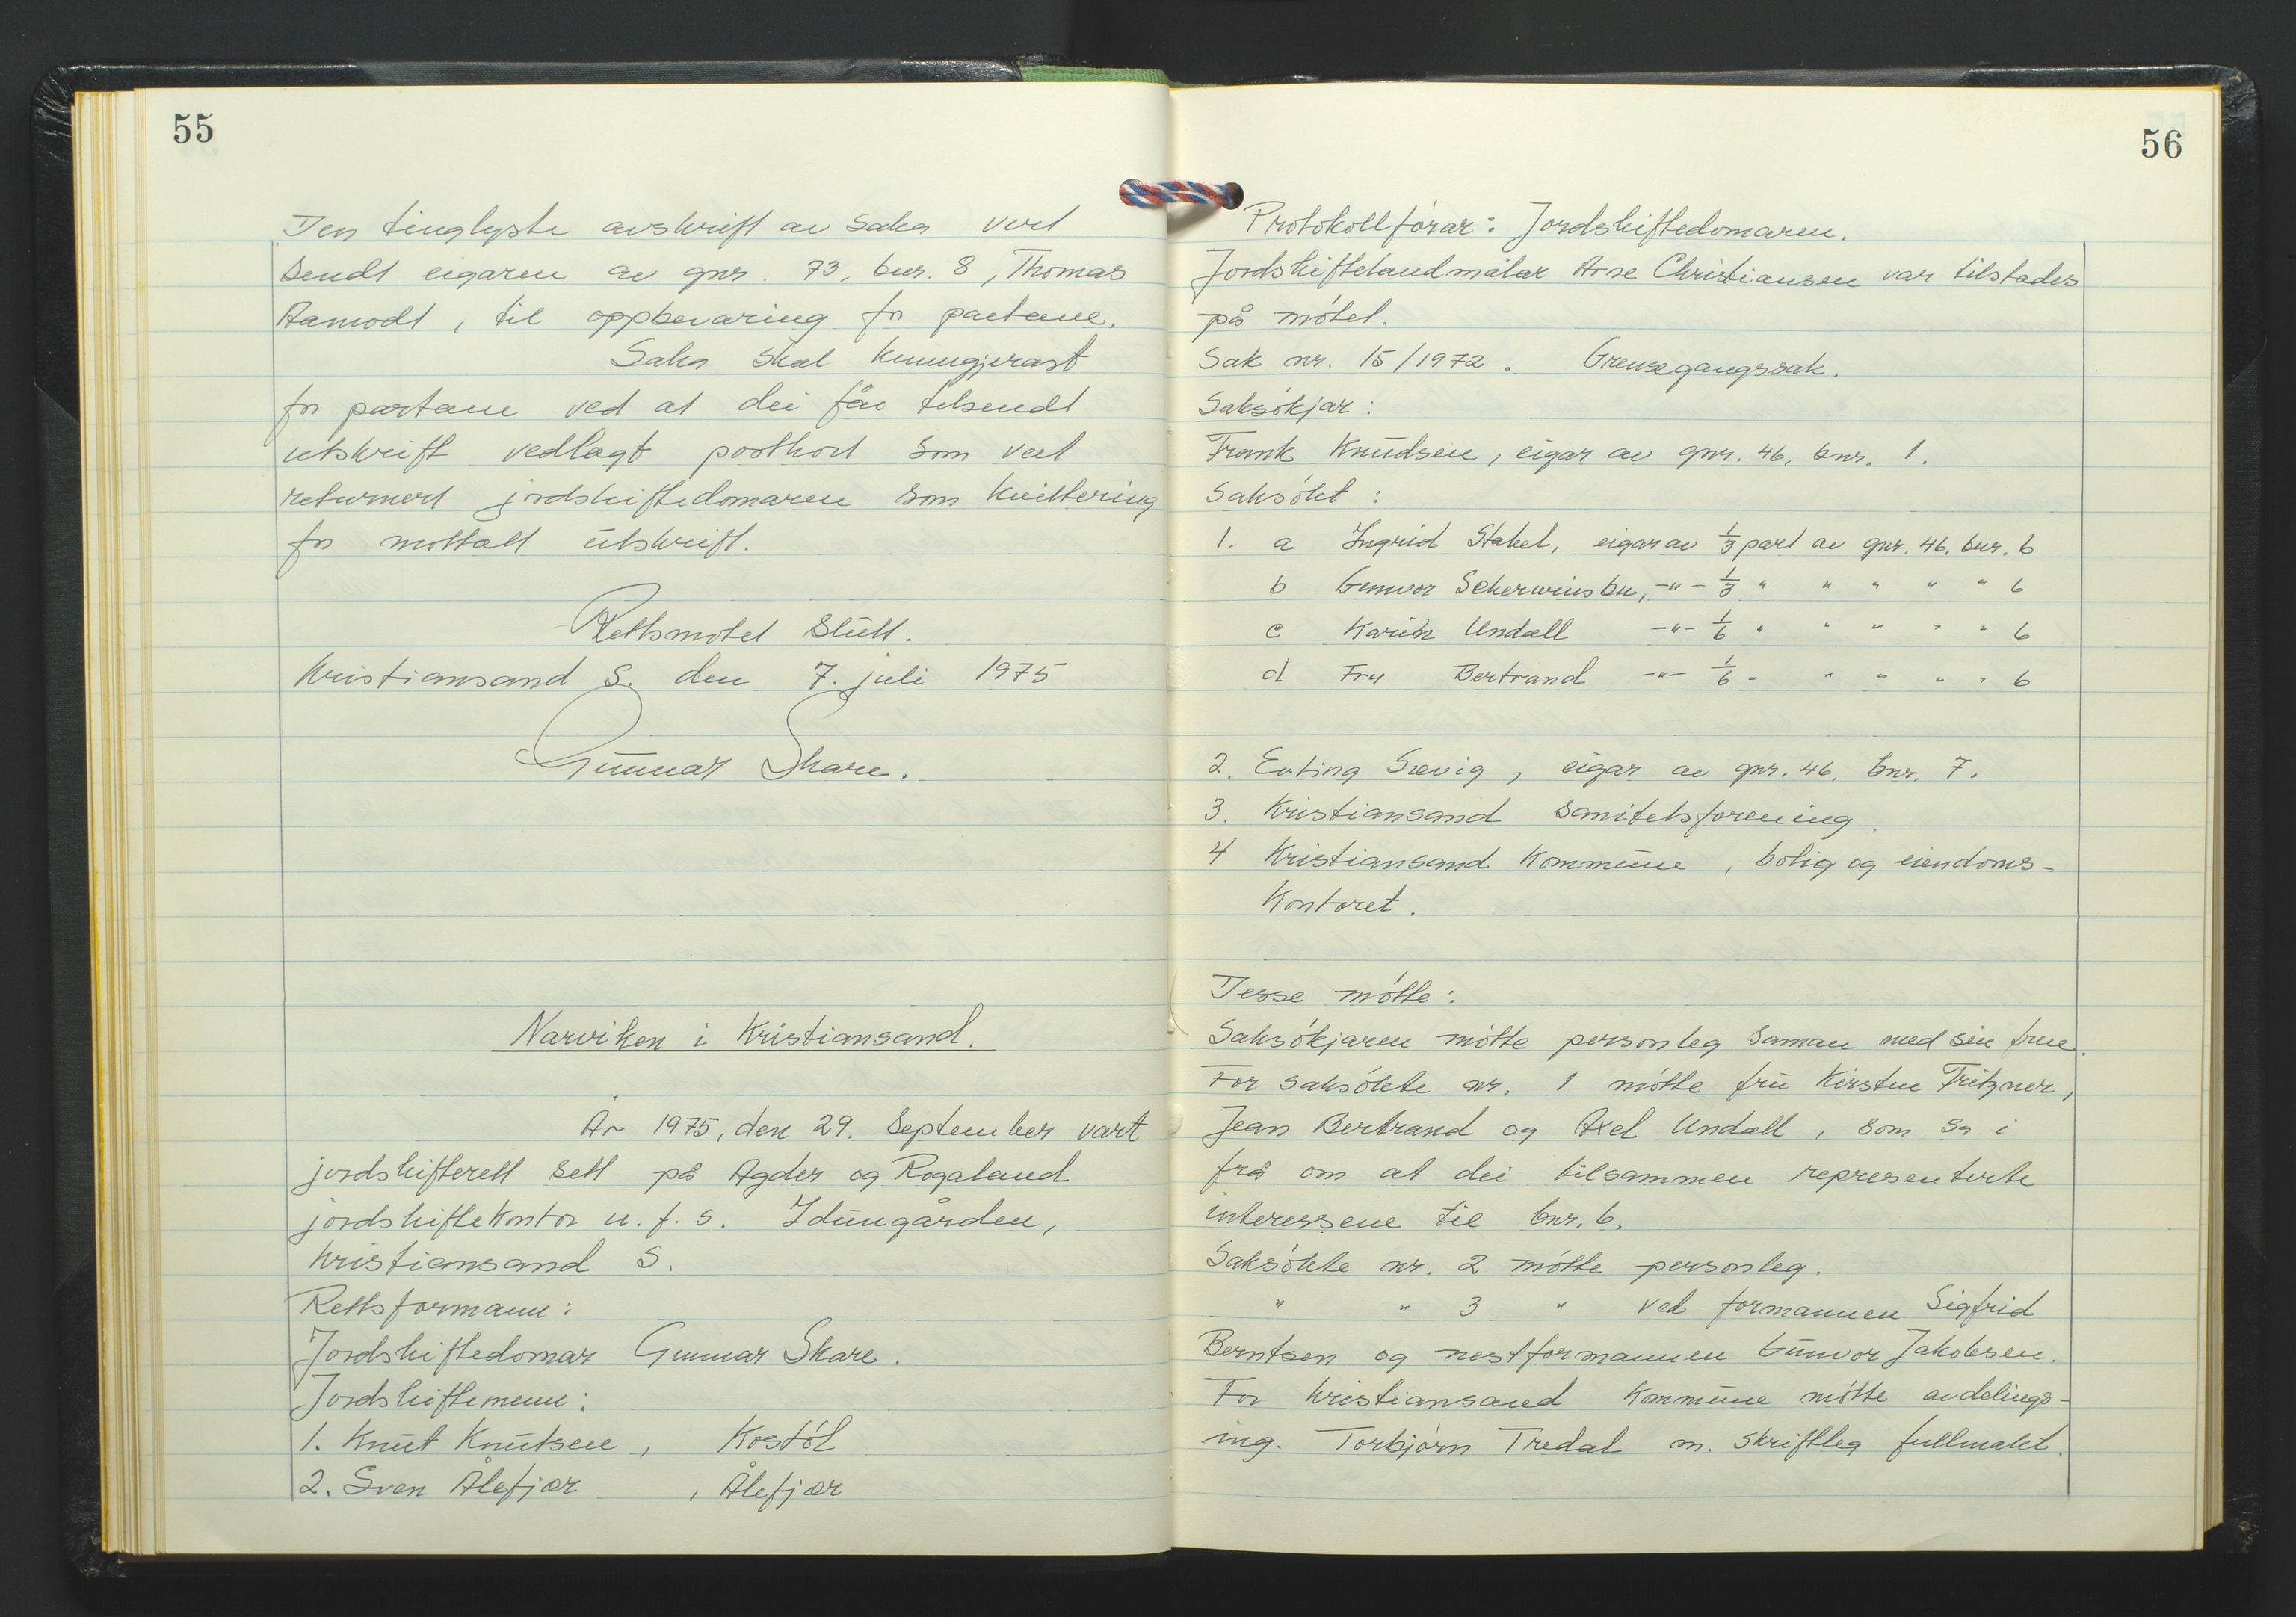 55
Den tinglyste avskrift av saka vert
sendt eigaren av gnr. 73, bnr. 8, Thomas
Aamodt, til oppbevaring for partane.
Saka skal kunngjerast
for partane ved at dei får tilsendt
utskrift vedlagt postkort som vert
returnert jordskiftedomaren som kvittering
for mottatt utskrift.
Rettsmøtet slutt.
Kristiansand S. den 7. juli 1975
Gunnar Skare.
Narviken i Kristiansand.
År 1975, den 29. September vart
jordskifterett sett på Agder og Rogaland
jordskiftekontor u. f. s. Idungården,
Kristiansand S.
Rettsformann:
Jordskiftedomar Gunnar Skare.
Jordskiftemenn:
1. Knut Knutsen, Kostøl
2. Sven Ålefjær, Ålefjær
56
Protokollførar: Jordskiftedomaren.
Jordskiftelandmålar Arne Christiansen var tilstades
på møtet.
Sak nr. 15/1972. Grensegangssak.
Saksøkjar:
Frank Knudsen, eigar av gnr. 46, bnr. 1.
Saksøkt:
1. a Ingrid Stakel, eigar av 1/3 part av gnr. 46, bnr. 6
b Gunvor -"- 1/3 " " " " " 6
c Karin Undall -"- 1/6 " " " " " 6
d Fru Bertrand -"- 1/6 " " " " " 6
2. Sævig, eigar av gnr. 46, bnr. 7.
3. Kristiansand Sanitetsforening.
4 Kristiansand Kommune, bolig og eiendoms-
Kontoret.
Desse møtte:
Saksøkjaren møtte personleg saman med sin frue.
For saksøkte nr. 1 møtte fru Kirsten Fritzner,
Jean Bertrand og Axel Undall, som sa i
frå om at dei tilsammen representerte
interessene til bnr. 6.
Saksøkte nr. 2 møtte personleg.
" " 3 " ved formannen Sigfrid
Berntsen og nestformannen Gunvor Jakobsen.
For Kristiansand Kommune møtte avdelings-
ing. Torbjørn Tredal m. skriftleg fullmakt.